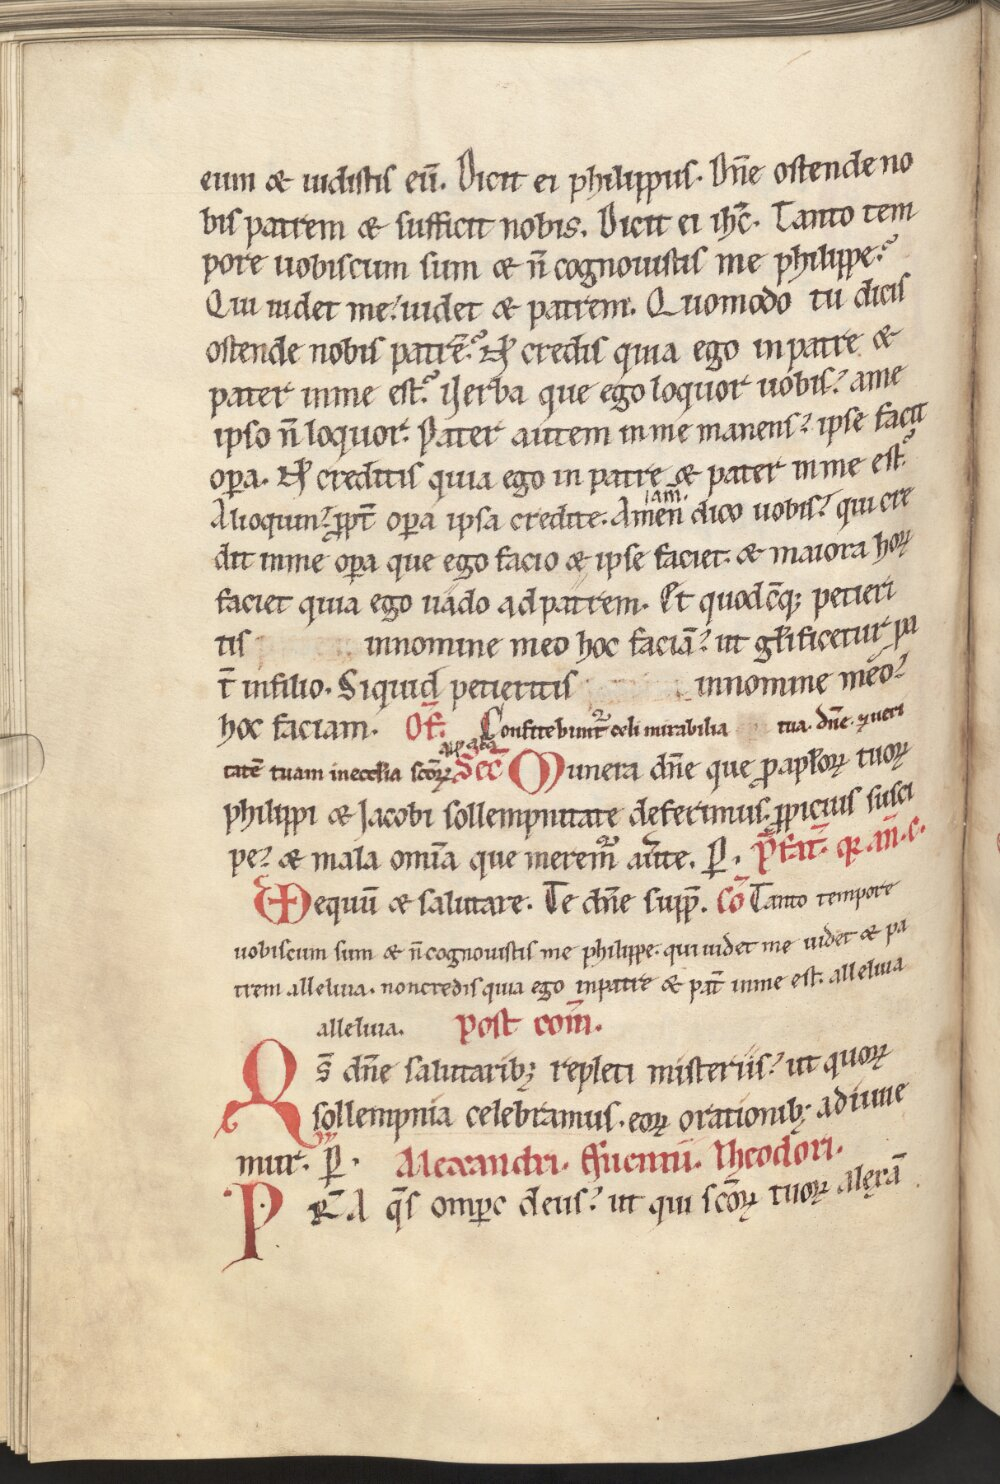 eum & uidistis eū. Dicit ei philippus. Dn̄e ostende no
bis patrem & sufficit nobis. Dicit ei ih̄c. Tanto tem
pore uobiscum sum & n̄ cognouistis me philippe?
Qui uidet me? uidet & patrem. Quomodo tu dicis
ostende nobis patrē? N̄ credis quia ego in patre &
pater in me est? Verba que ego loquor uobis? a me
ipso n̄ loquor. Pater autem in me manens? ipse facit
opa. N̄ creditis quia ego in patre & pater in me est?
Alioquin? ꝓpt̄ opa ipsa credite. Amen iam. dico uobis? qui cre
dit in me opa que ego facio & ipse faciet. & maiora hoꝝ
faciet quia ego uado ad patrem. Et quodcūqꝫ petieri
tis in nomine meo hoc faciā? ut gl̄ificetur pa
t̄ in filio. Siquid petieritis in nomine meo?
hoc faciam. Of̄. Confitebunt᷑ celi mirabilia tua. dn̄e. & ueri
tatē tuam in eccl̄ia scōꝝ all̄a all̄a Sec̄ Munera dn̄e que ꝓ ap̄l̄oꝝ tuoꝝ
philippi & Jacobi sollempnitate deferimus. ꝓpicius susci
pe? & mala om̄ia que meremur auerte. P̄. P̄fat̄. qr̄ an̄. s.
Dequū & salutare. Te dn̄e supp̄. Cō Tanto tempore
uobiscum sum & n̄ cognouistis me philippe. qui uidet me uidet & pa
trem alleluia. non credis quia ego in patre & pat̄ in me est. alleluia
alleluia. Post com̄.
Qs̄ dn̄e salutaribꝫ repleti misteriis? ut quoꝝ
sollempnia celebramus. eoꝝ orationibꝫ adiuue
mur. P̄. Alexandri. Euentii. Theodori.
PRA q̄s omp̄c deus? ut qui scōꝝ tuoꝝ alexā